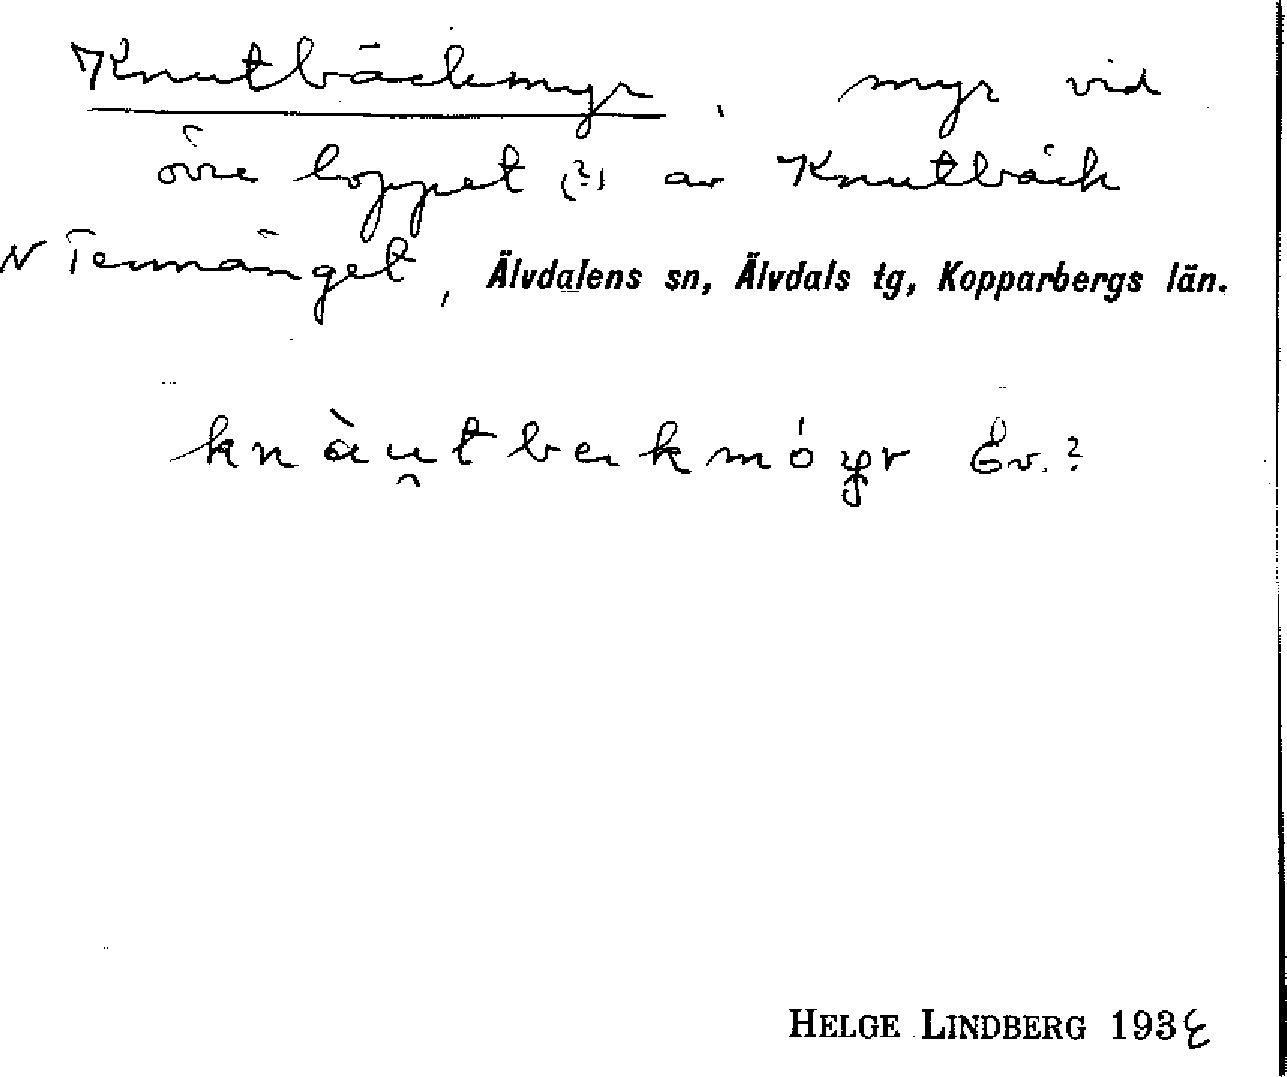 Knutbäckmyr, myr vid
övre loppet (?) av Knutbäck
N Temänget, Älvdalens sn, Älvdals tg, Kopparbergs län.
knàu̯tbekmóyr Ev.?
HELGE LINDBERG 193